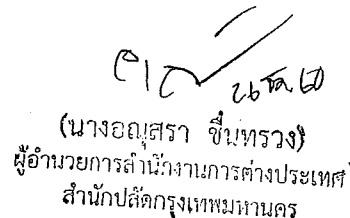 (นางอณุสรา ชื่นทรวง)
ผู้อำนวยการสำนักงานการต่างประเทศ
สำนักปลัดกรุงเทพมหานคร